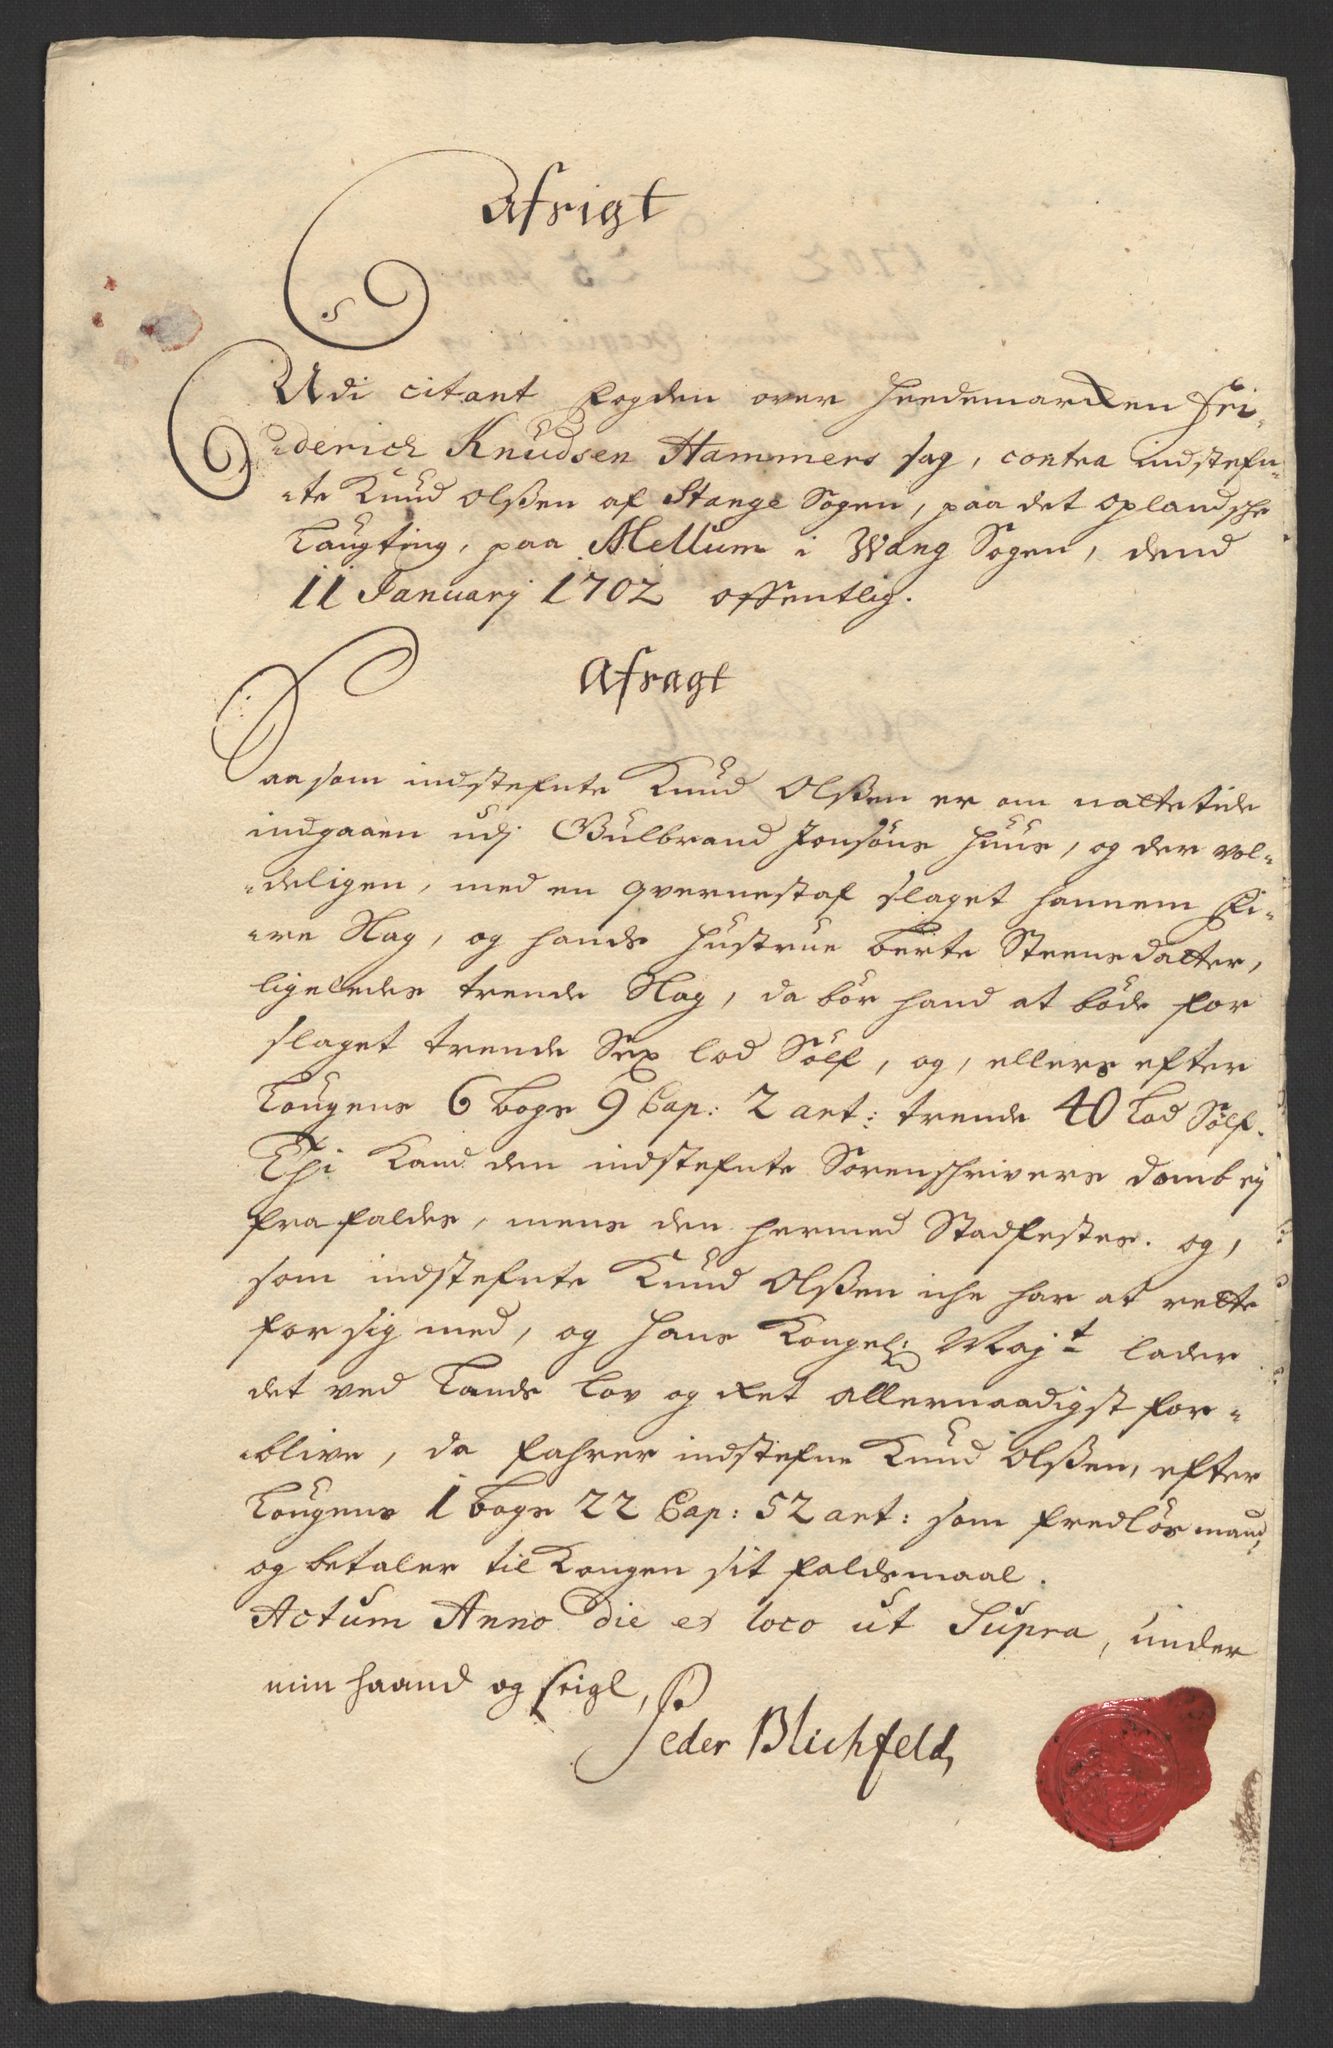 Afsigt
Udi citant Fogden over Heedemarcken Fri-
-derich Knudsen Hammers sag, contra indstefn-
-te Knud Olßen af Stange Sogen, paa det oplandsche
Laugting, paa Mellum i Wang Sogen, dend
11 Januarj 1702 offentlig.
Afsagt
Saasom indstefnte Knud Olßen er om nattetide
indgaaen udj Gulbrand Jonsøns Huus, og der vol-
-deligen, med en qvernestaf slaget hannem Fi-
-re Slag, og hands Hustrue Berte Steensdatter,
ligeledes trende Slag, da bør hand at bøde for
slaget trende Sex lod Sølf, og, ellers efter
Lougens 6 bogs 9 Cap: 2 art: trende 40 Lod Sølf.
Thi kand den indstefnte Sorenschrivers domb ej
frafaldes, mens den hermed Stadfestes. og,
som indstefnte Knud Olßen iche har at rette
for sig med, og Hans Kongel: Majt lader
det ved Lands lov og Ret allernaadigst for-
-blive, da fahrer indstefne Knud Olßen, efter
Lougens 1 bogs 22 Cap: 52 art: som fredløs mand,
og betaler til Kongen sit faldsmaal.
Actum Anno die et loco ut Supra, under
min haand og seigl,
Peder Blichfeld,